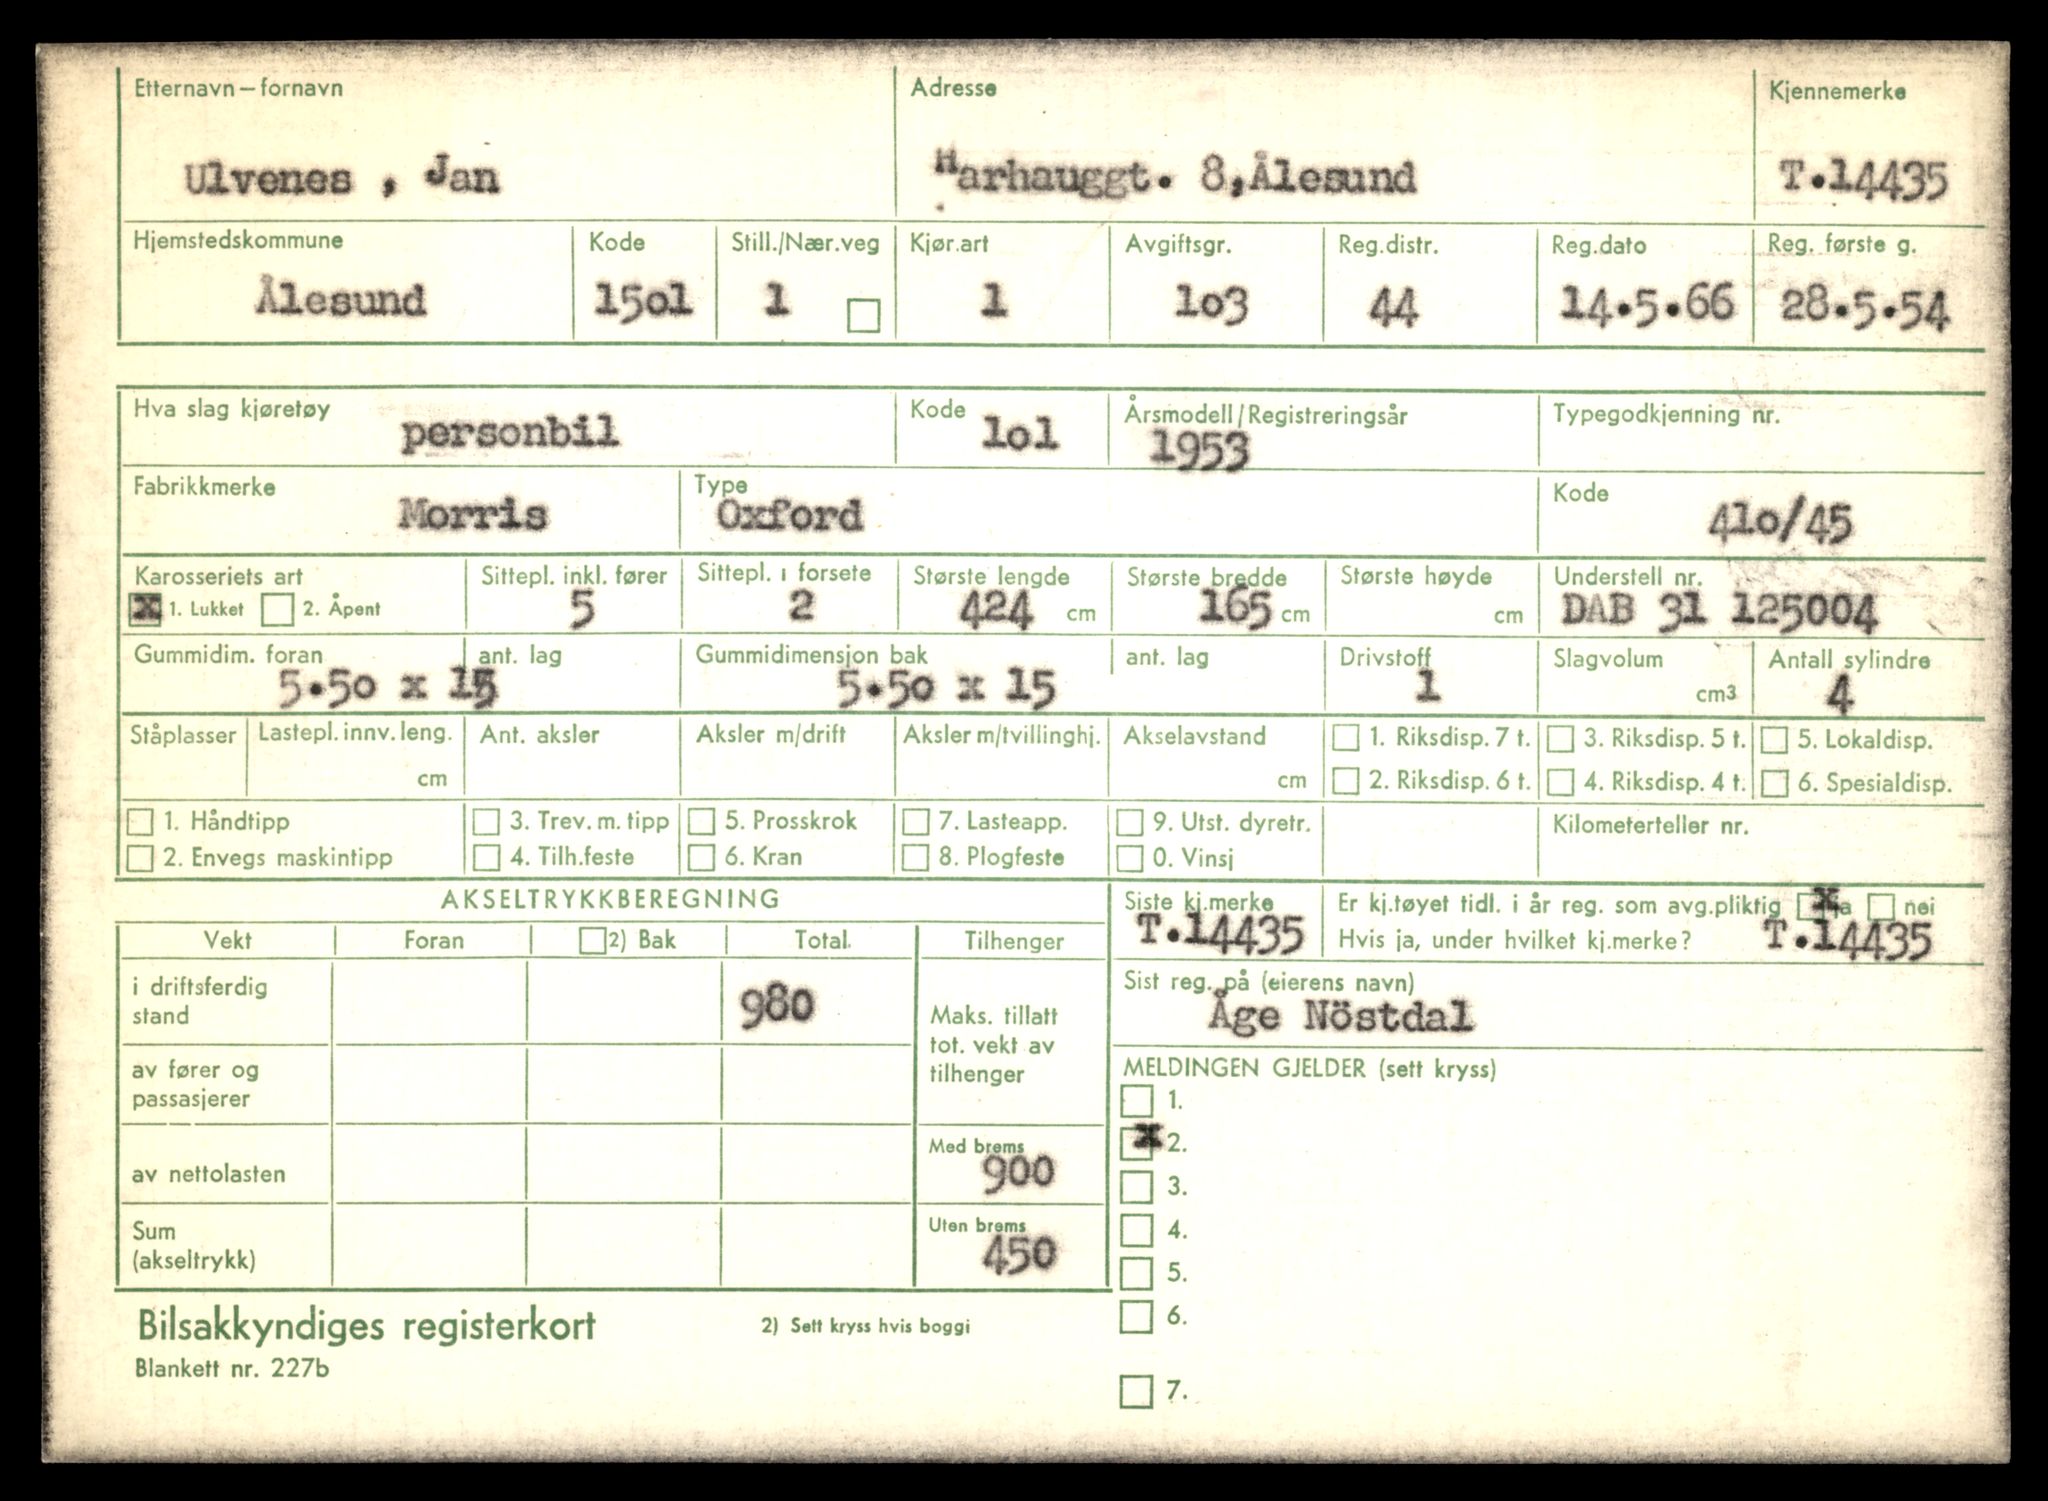 Etternavn – fornavn Adresse Kjennemerke
Ulvenes , Jan Harhauggt. 8,Ålesund T.14435
Hjemstedskommune Kode Still./Nær.veg Kjør.art Avgiftsgr. Reg.distr. Reg.dato Reg. første g.
Ålesund 15o1 1 1 1o3 44 14.5.66 28.5.54
Hva slag kjøretøy Kode Årsmodell/Registreringsår Typegodkjenning nr.
personbil 1o1 1953
Fabrikkmerke Type Kode
Morris Oxford 41o/45
Karosseriets art Sittepl. inkl. fører Sittepl. i forsete Største lengde Største bredde Største høyde Understell nr.
x 1. Lukket 2. Åpent 5 2 424 cm 165 cm cm DAB 31 125004
Gummidim. foran ant. lag Gummidimensjon bak ant. lag Drivstoff Slagvolum Antall sylindre
5.5o x 15 5.5o x 15 1 cm3 4
Ståplasser Lastepl. innv. leng. Ant. aksler Aksler m/drift Aksler m/tvillinghj. Akselavstand 1. Riksdisp. 7 t. 3. Riksdisp. 5 t. 5. Lokaldisp.
cm cm 2. Riksdisp. 6 t. 4. Riksdisp. 4 t. 6. Spesialdisp.
1. Håndtipp 3. Trev. m. tipp 5. Prosskrok 7. Lasteapp. 9. Utst. dyretr. Kilometerteller nr.
2. Envegs maskintipp 4. Tilh.feste 6. Kran 8. Plogfeste 0. Vinsj
AKSELTRYKKBEREGNING
Siste kj.merke Er kj.tøyet tidl. i år reg. som avg.pliktig x ja nei
T.14435 Hvis ja, under hvilket kj.merke? T.14435
Vekt Foran 2) Bak Total. Tilhenger
Sist reg. på (eierens navn)
Åge Nöstdal
i driftsferdig
stand 980
Maks. tillatt
tot. vekt av
tilhenger
av fører og
passasjerer
MELDINGEN GJELDER (sett kryss)
1.
x 2.
3.
4.
5.
6.
7.
av nettolasten
Med brems
900
Sum
(akseltrykk)
Uten brems
450
Bilsakkyndiges registerkort 2) Sett kryss hvis boggi
Blankett nr. 227b